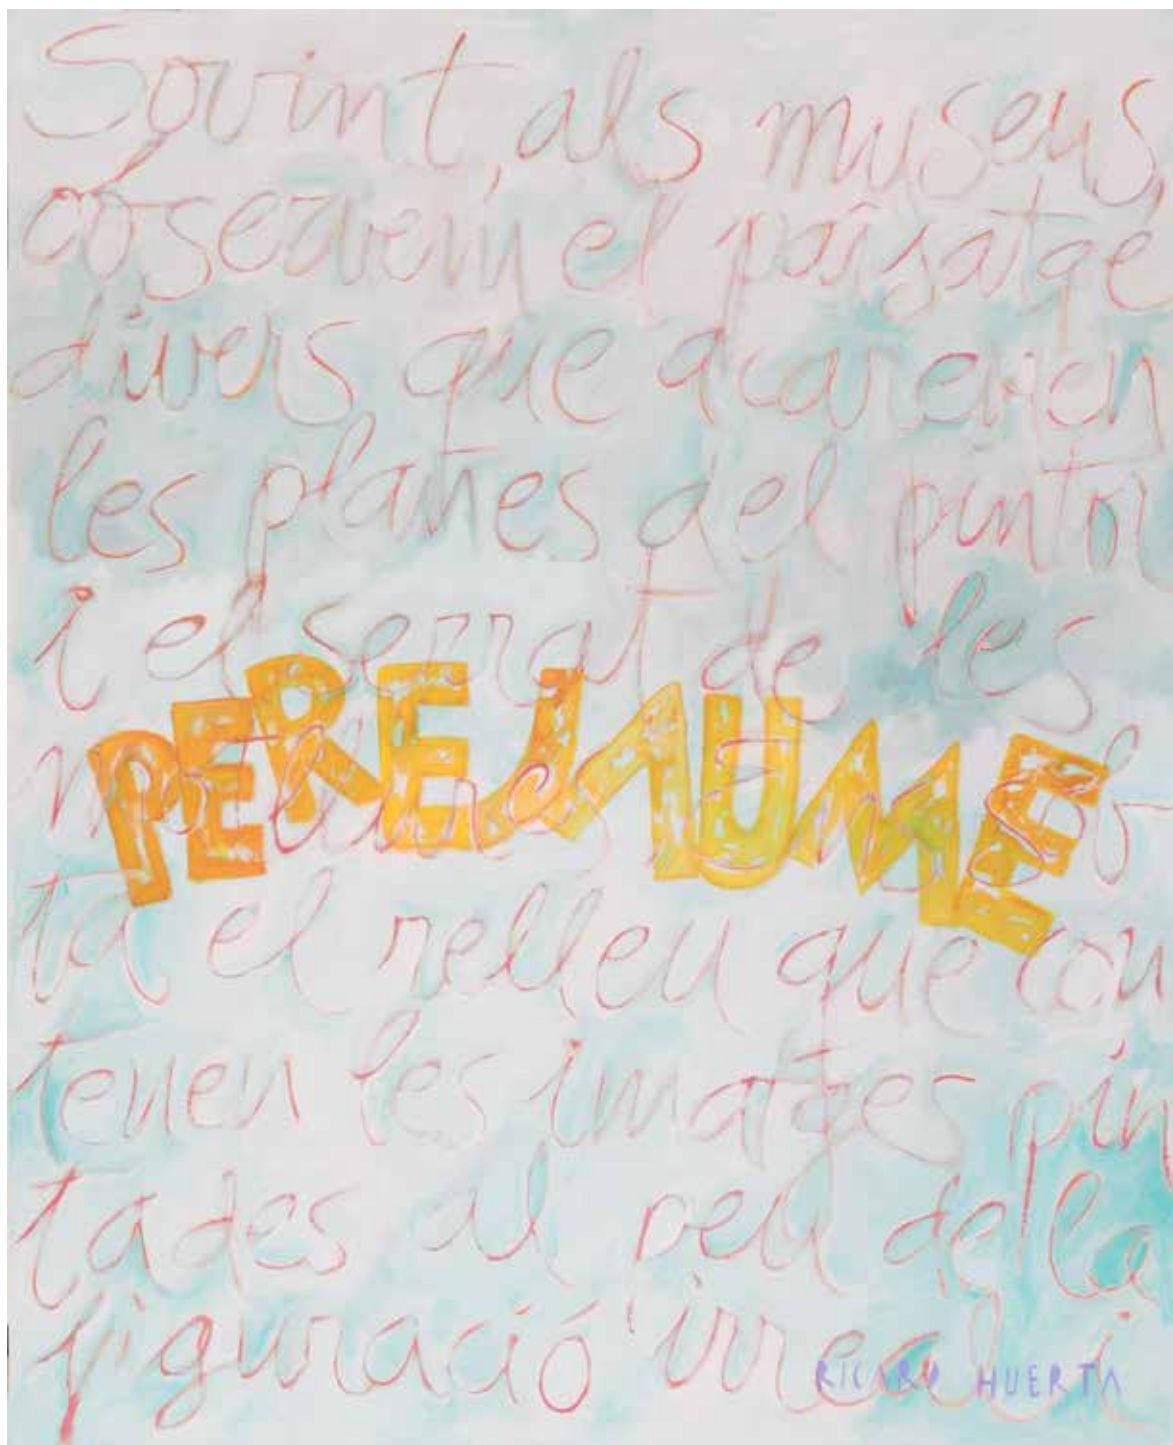 Sovint, als museus,
observem el paisatge
divers que
les planes del pintor
i el serrat de les
PEREJAUME
ta el relleu que con
tenen les imatges pin
tades al peu de la
figuració irreal i
RICARD HUERTA